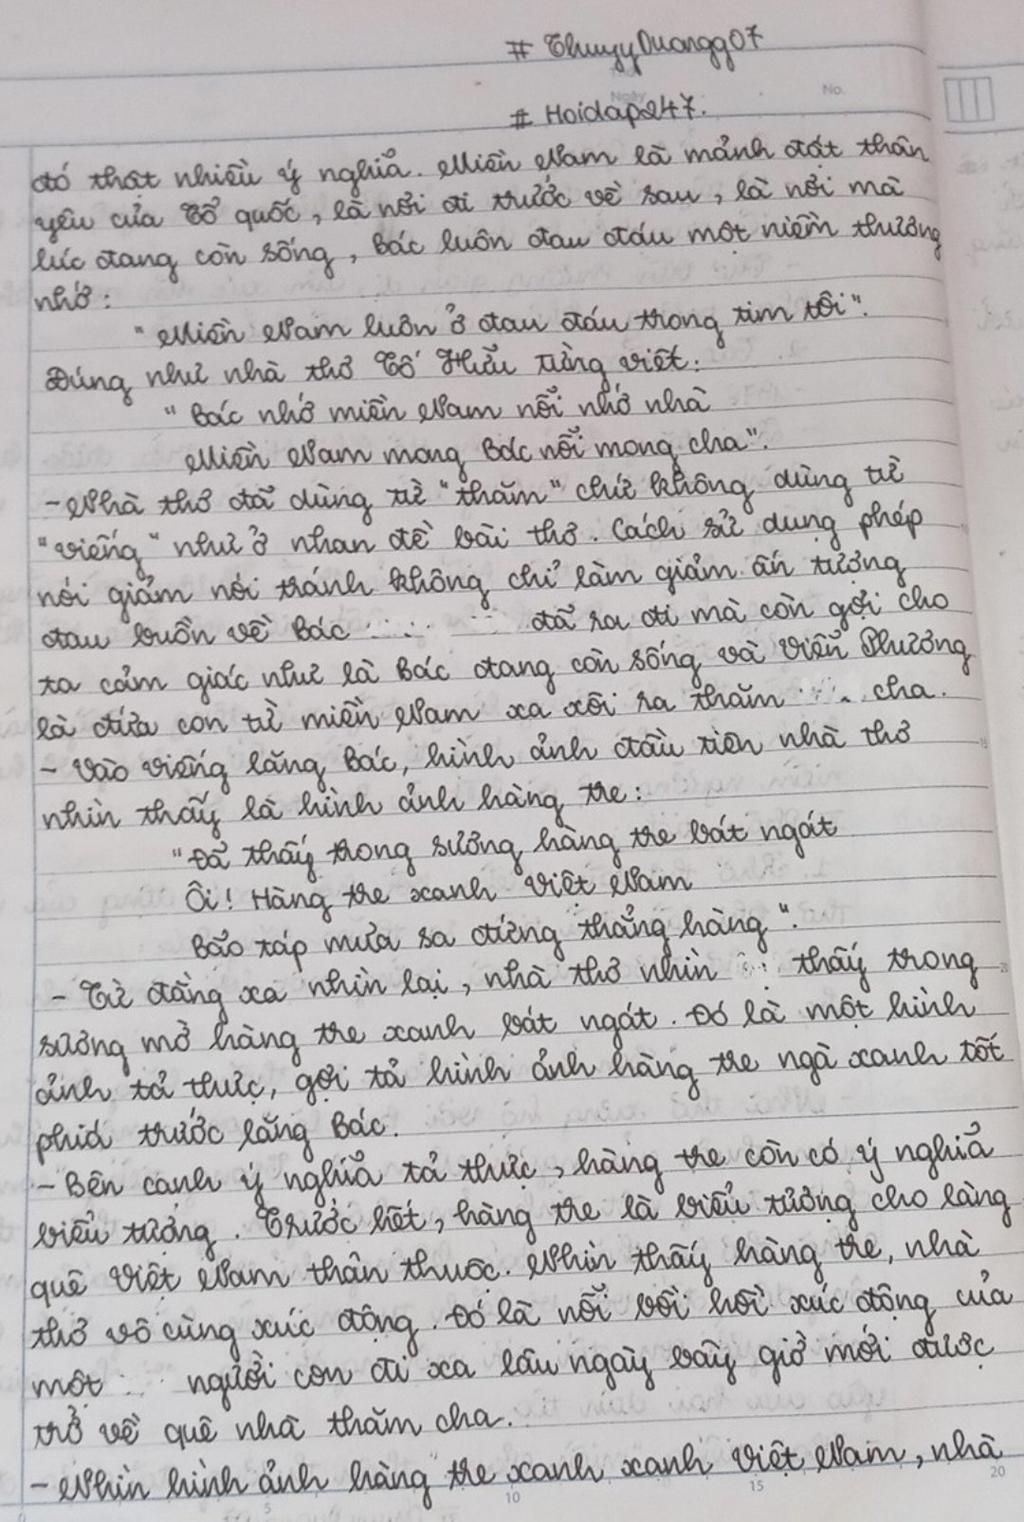 # ThuyyDuongg07
Ngày No.
# Hoidap247.
đó thật nhiều ý nghĩa. Miền Nam là mảnh đất thân
yêu của Tổ quốc, là nơi đi trước về sau, là nơi mà
lúc đang còn sống, Bác luôn đau đáu một niềm thương
nhớ:
"Miền Nam luôn ở đau đáu trong tim tôi".
Đúng như nhà thơ Tố Hữu từng viết:
"Bác nhớ miền Nam nỗi nhớ nhà
Miền Nam mong Bác nỗi mong cha".
- Nhà thơ đã dùng từ "thăm" chứ không dùng từ
"viếng" như ở nhan đề bài thơ. Cách sử dụng phép
nói giảm nói tránh không chỉ làm giảm ấn tượng
đau buồn về Bác đã ra đi mà còn gợi cho
ta cảm giác như là Bác đang còn sống và Viễn Phương
là đứa con từ miền Nam xa xôi ra thăm cha.
- Vào viếng lăng Bác, hình ảnh đầu tiên nhà thơ
nhìn thấy là hình ảnh hàng tre:
"Đã thấy trong sương hàng tre bát ngát
Ôi! Hàng tre xanh Việt Nam
Bão táp mưa sa đứng thẳng hàng".
- Từ đằng xa nhìn lại, nhà thơ nhìn thấy trong
sương mờ hàng tre xanh bát ngát. Đó là một hình
ảnh tả thực, gợi tả hình ảnh hàng tre ngà xanh tốt
phía trước lăng Bác.
- Bên cạnh ý nghĩa tả thực, hàng tre còn có ý nghĩa
biểu tượng. Trước hết, hàng tre là biểu tượng cho làng
quê Việt Nam thân thuộc. Nhìn thấy hàng tre, nhà
thơ vô cùng xúc động. Đó là nỗi bồi hồi xúc động của
một người con đi xa lâu ngày bây giờ mới được
trở về quê nhà thăm cha.
- Nhìn hình ảnh hàng tre xanh xanh Việt Nam, nhà
0 5 10 15 20